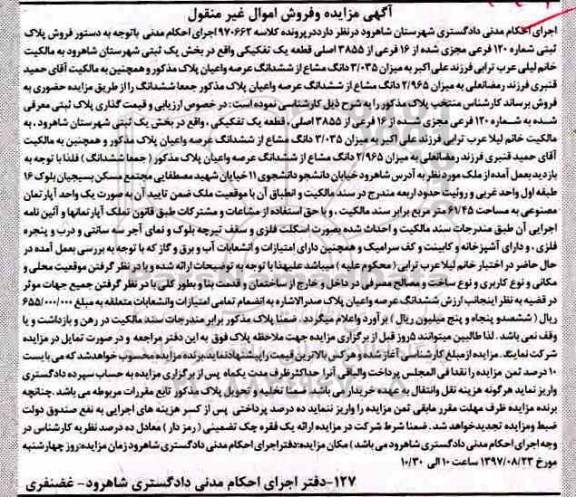 آگهی مزایده وفروش اموال غیر منقول
اجرای احکام مدنی دادگستری شهرستان شاهرود درنظر دارد درپرونده کلاسه ۹۷۰۶۶۲ اجرای احکام مدنی باتوجه به دستور فروش پلاک
ثبتی شماره ۱۲۰ فرعی مجزی شده از ۱۶ فرعی از ۳۸۵۵ اصلی قطعه یک تفکیکی واقع در بخش یک ثبتی شهرستان شاهرود به مالکیت
خانم لیلی عرب ترابی فرزند علی اکبر به میزان ۳/۰۳۵ دانگ مشاع از ششدانگ عرصه واعیان پلاک مذکور و همچنین به مالکیت آقای حمید
قنبری فرزند رمضانعلی به میزان ۲/۹۶۵ دانگ مشاع از ششدانگ عرصه واعیان پلاک مذکور جمعا ششدانگ را از طریق مزایده حضوری به
فروش برساند کارشناس منتخب پلاک مذکور را به شرح ذیل کارشناسی نموده است: در خصوص ارزیابی و قیمت گذاری پلاک ثبتی معرفی
شده به شماره ۱۲۰ فرعی مجزی شده از ۱۶ فرعی از ۳۸۵۵ اصلی ، قطعه یک تفکیکی ، واقع در بخش یک ثبتی شهرستان شاهرود ، به
مالکیت خانم لیلا عرب ترابی فرزند علی اکبر به میزان ۳/۰۳۵ دانگ مشاع از ششدانگ عرصه واعیان پلاک مذکور و همچنین به مالکیت
آقای حمید قنبری فرزند رمضانعلی به میزان ۲/۹۶۵ دانگ مشاع از ششدانگ عرصه واعیان پلاک مذکور ( جمعا ششدانگ ) فلذا با توجه به
بازدید بعمل آمده از ملک مورد نظر به آدرس شاهرود خیابان دانشجو دانشجوی ۱۱ خیابان شهید مصطفایی مجتمع مسکن بسیجیان بلوک ۱۶
طبقه اول واحد غربی و روئیت حدود اربعه مندرج در سند مالکیت و انطباق آن با موقعیت ملک ضمن تایید آن به صورت یک واحد آپارتمان
مصنوعی به مساحت ۶۱/۴۵ متر مربع برابر سند مالکیت ، و با حق استفاده از مشاعات و مشترکات طبق قانون تملک آپارتمانها و آئین نامه
اجرایی آن طبق مندرجات سند مالکیت و احداث شده بصورت اسکلت فلزی و سقف تیرچه بلوک و نمای آجر سه سانتی و درب و پنجره
فلزی ، و دارای آشپزخانه و کابینت و کف سرامیک و همچنین دارای امتیازات و انشعابات آب و برق و گاز که با توجه به بررسی بعمل آمده در
حال حاضر در اختیار خانم لیلا عرب ترابی (محکوم علیه ) میباشد علیهذا با توجه به توضیحات ارائه شده و با در نظر گرفتن موقعیت محلی و
مکانی و نوع کاربری و نوع ساخت و مصالح مصرفی در داخل و خارج از ساختمان و قدمت بنا و بطور کلی با در نظر گرفتن جمیع جهات موثر
در قضیه به نظر اینجانب ارزش ششدانگ عرصه واعیان پلاک صدرالاشاره به انضمام تمامی امتیازات وانشعابات متعلقه به مبلغ ۶۵۵/۰۰۰/۰۰۰
ریال ( ششصدو پنجاه و پنج میلیون ریال ) برآورد واعلام میگردد . ضمنا پلاک مذکور برابر مندرجات سند مالکیت در رهن و بازداشت و یا
وقف نمی باشد . لذا طالبین میتوانند ۵روز قبل از برگزاری مزایده جهت ملاحظه پلاک فوق به این دفتر مراجعه و در صورت تمایل در مزایده
شرکت نمایند. مزایده از مبلغ کارشناسی آغاز شده و هرکس بالاترین قیمت را پیشنهاد نماید برنده مزایده محسوب خواهدشد که می بایست
۱۰ درصد ثمن مزایده را نقدا فی المجلس پرداخت والباقی آنرا حداکثر ظرف مدت یکماه پس از برگزاری مزایده به حساب سپرده دادگستری
واریز نماید هرگونه هزینه نقل وانتقال به عهده خریدار می باشد . ضمنا تخلیه و تحویل پلاک مذکور تابع مقررات مربوطه می باشد .چنانچه
برنده مزایده ظرف مهلت مقرر مابقی ثمن مزایده را واریز ننماید ده درصد پرداختی پس از کسر هزینه های اجرایی به نفع صندوق دولت
ضبط ومزایده تجدید خواهد شد. ضمنا شرط شرکت در مزایده ارائه یک فقره چک تضمینی ( رمز دار ) معادل ده درصد نظریه کارشناس در
وجه اجرای احکام مدنی دادگستری شاهرود می باشد ) مکان مزایده:دفتراجرای احکام مدنی دادگستری شاهرود زمان مزایده:روز چهارشنبه
مورخ ۱۳۹۷/۰۸/۲۳ ساعت ۱۰ الی ۱۰/۳۰
۱۲۷-دفتر اجرای احکام مدنی دادگستری شاهرود- غضنفری